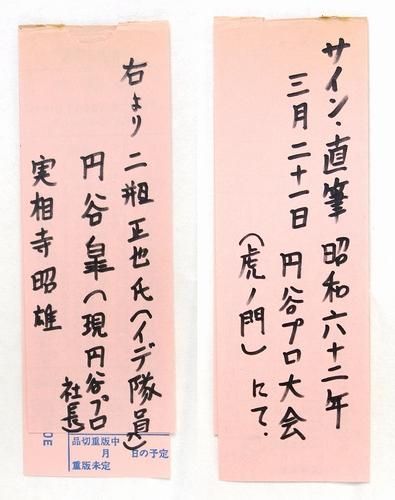 サイン・直筆 昭和六十二年
三月二十一日 円谷プロ大会
(虎ノ門) にて.
右より 二瓶正也氏(イデ隊員)
円谷皐(現円谷プロ
社長)
実相寺昭雄
DE
品切重版中
月 日の予定
重版未定